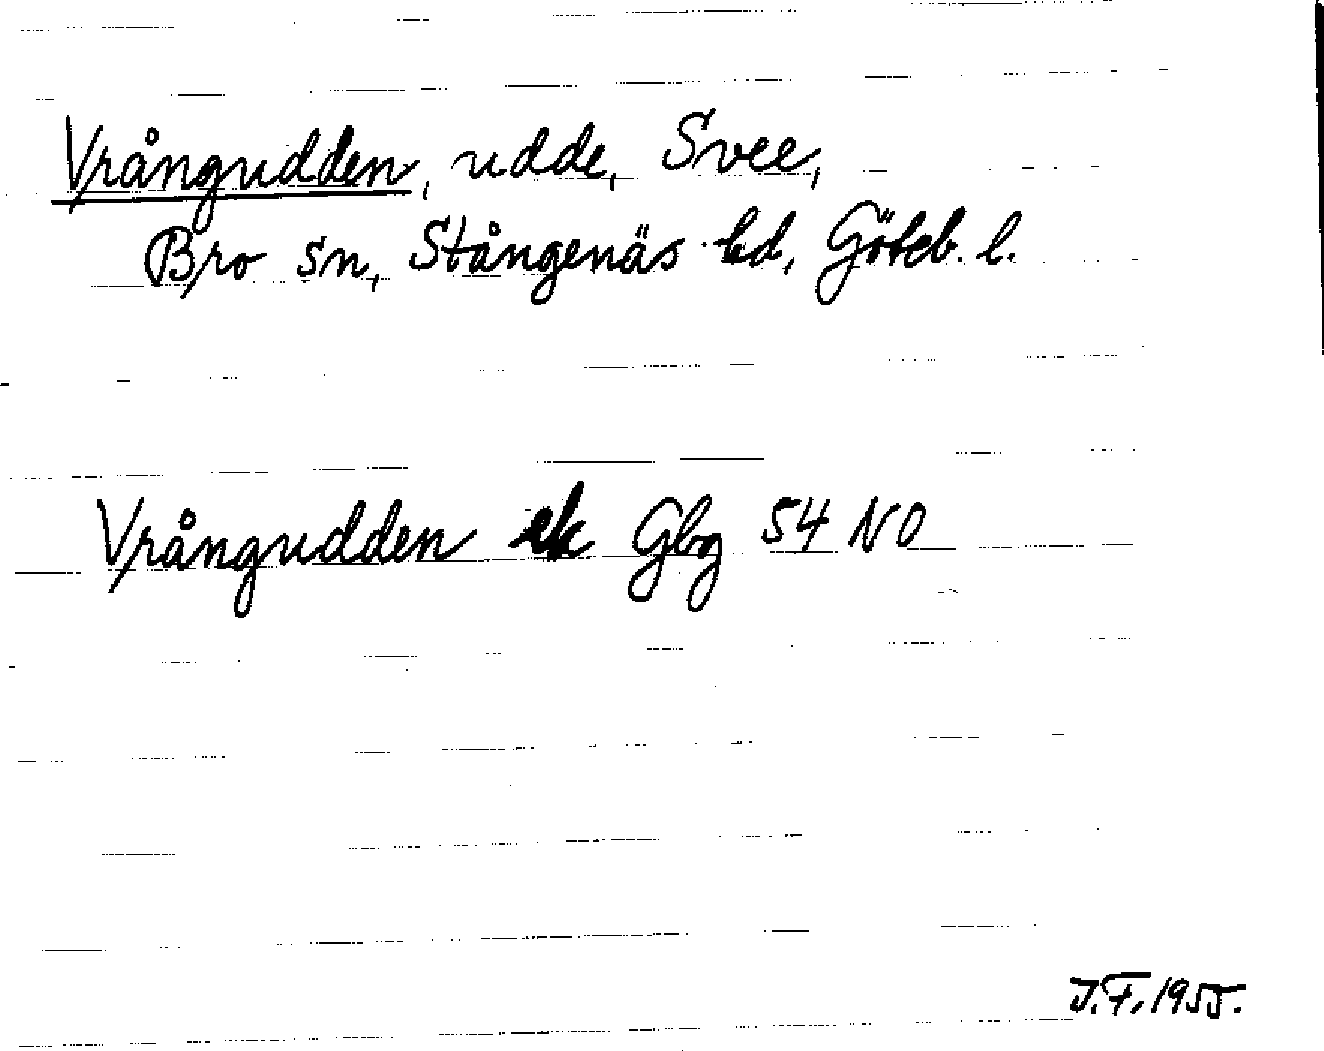 Vrångudden, udde, Svee,
Bro sn, Stångenäs hd, Göteb. l.
Vrångudden ek Gbg 54 NO
J.F. 1955.